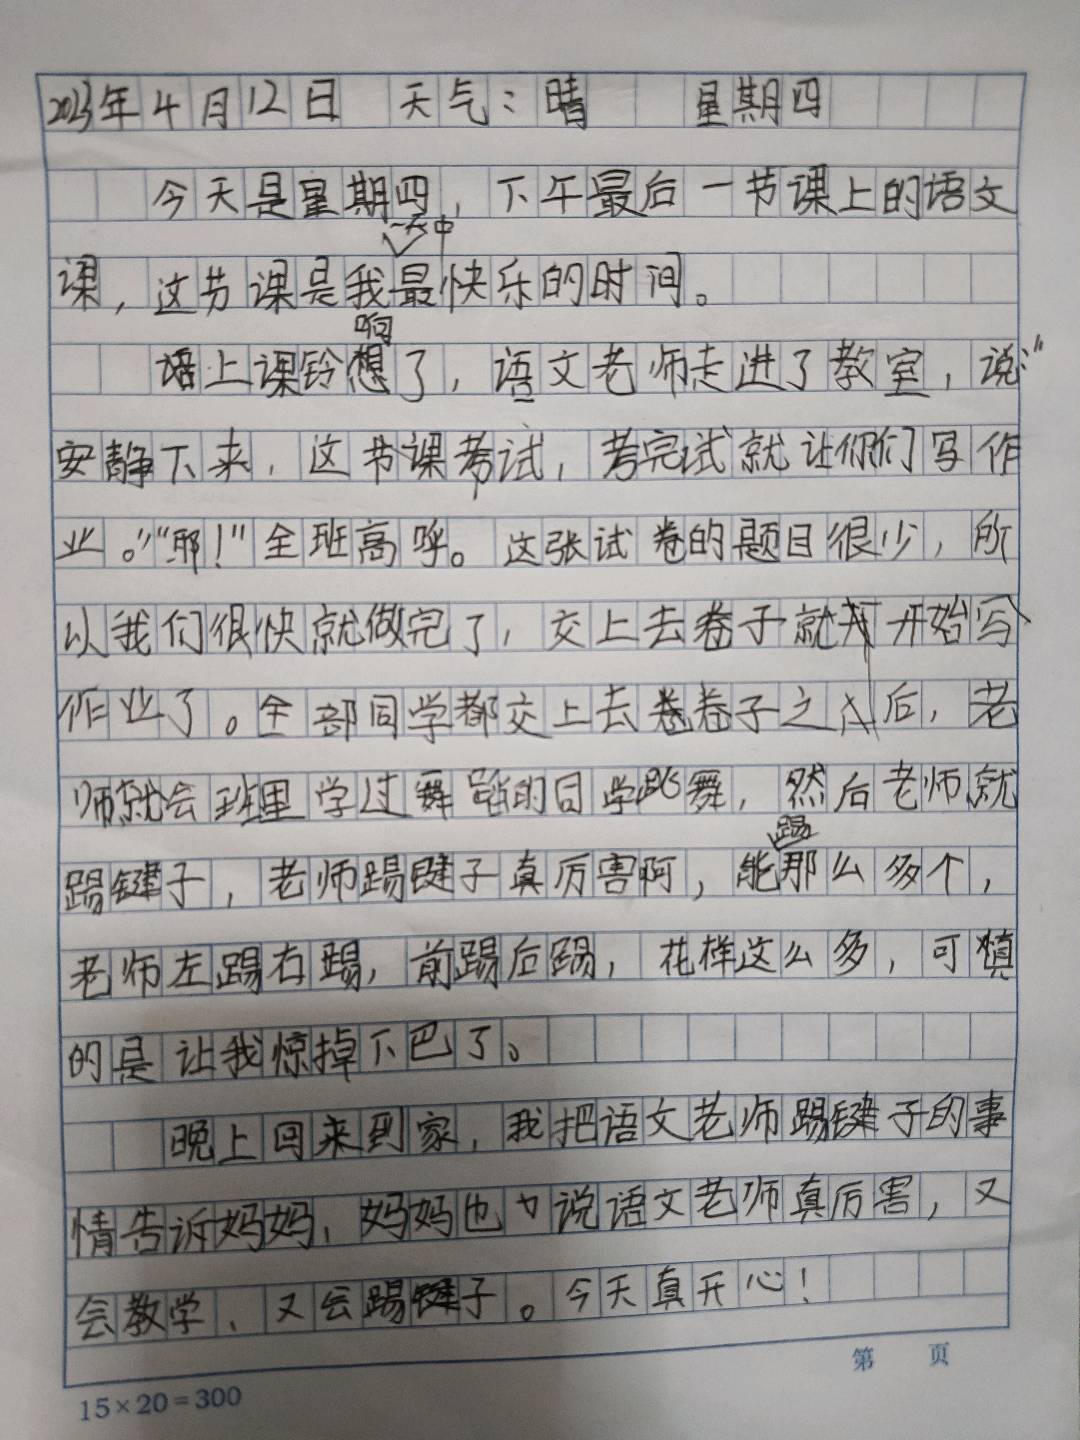 2023年4月12日 天气：晴 星期四
今天是星期四，下午最后一节课上的语文
一天中
课，这节课是我最快乐的时间。
响
上课铃想了，语文老师走进了教室，说：“
安静下来，这节课考试，考完试就让你们写作
业。”“耶！”全班高呼。这张试卷的题目很少，所
以我们很快就做完了，交上去卷子就开始写
作业了。全部同学都交上去卷卷子之后，老
师就会班里学过舞蹈的同学跳舞，然后老师就
踢
踢键子，老师踢键子真厉害啊，能那么多个，
老师左踢右踢，前踢后踢，花样这么多，可慎
的是让我惊掉下巴了。
晚上回来到家，我把语文老师踢键子的事
情告诉妈妈，妈妈也说语文老师真厉害，又
会教学、又会踢键子。今天真开心！
第 页
15×20=300